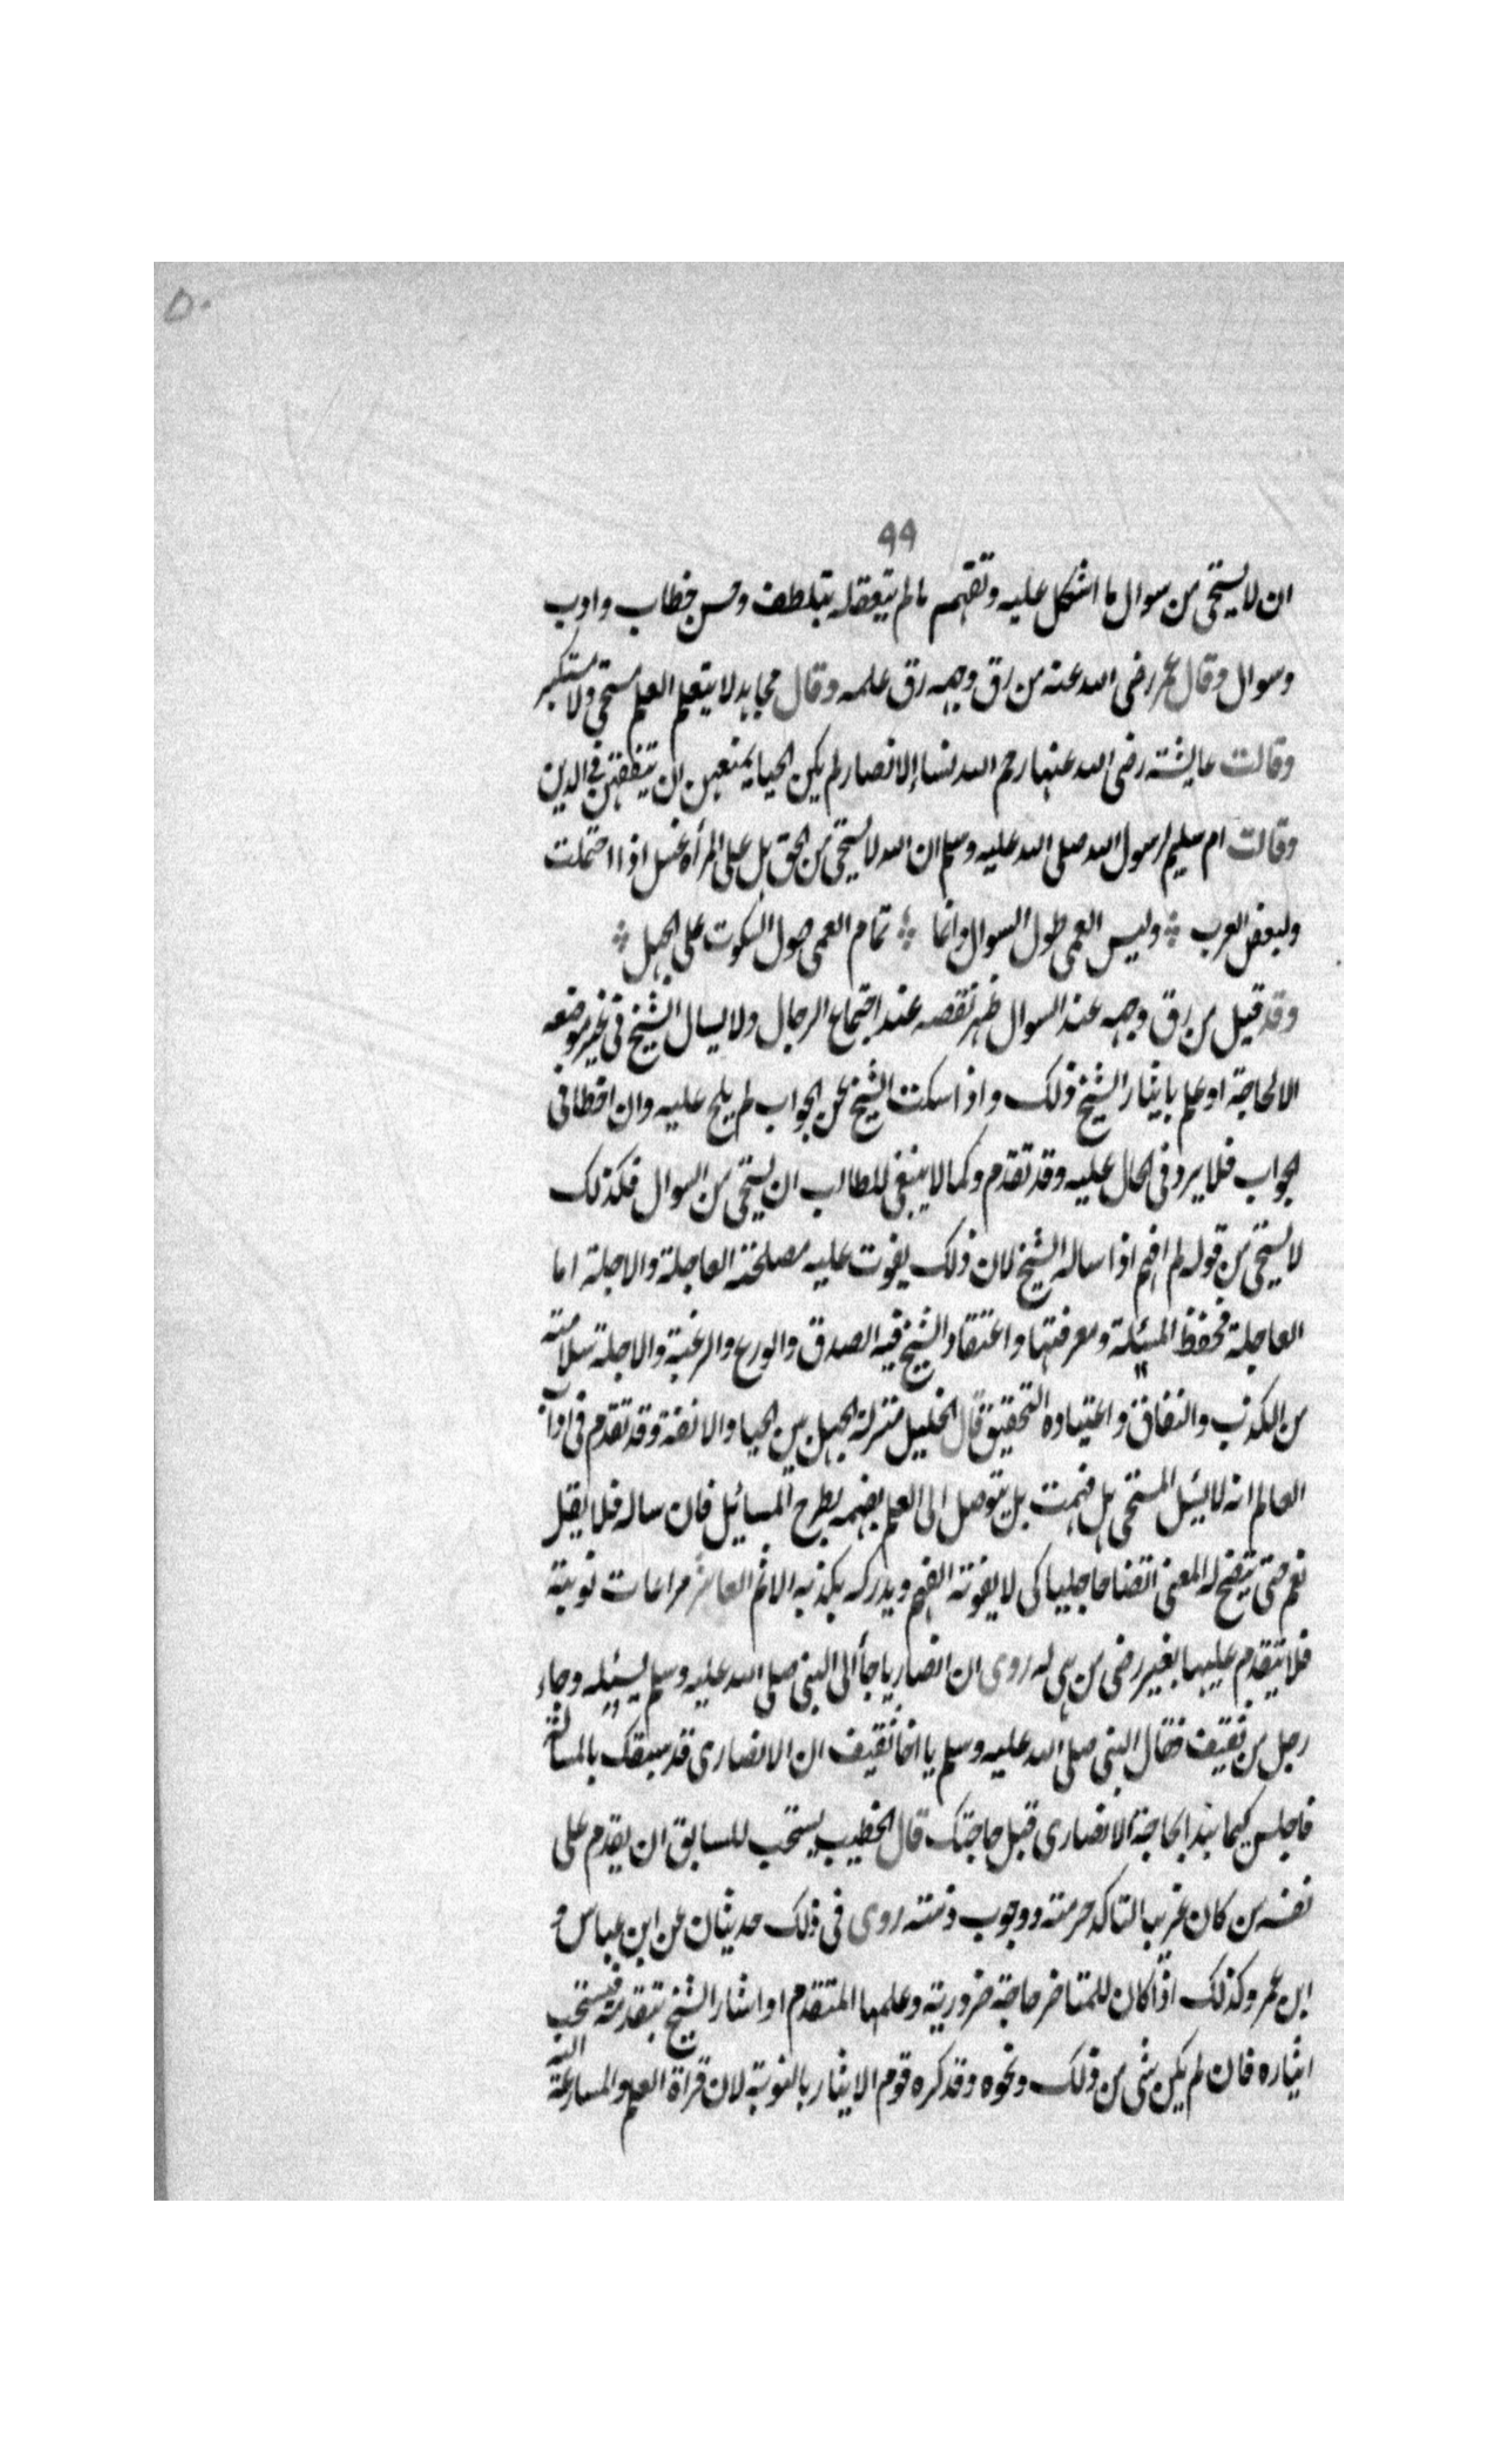 ٥٠
٩٩
ان لا يستحى من سوال ما اشكل عليه وتفهم ما لم يتعقله بتلطف وحسن خطاب وادب
وسوال وقال عمر رضى الله عنه من رق وجهه رق علمه وقال مجاهد لا يتعلم العلم مستحى ولا مستكبر
وقالت عايشة رضى الله عنها رحم الله نساء الانصار لم يكن الحيا يمنعهن ان يتفقهن فى الدين
وقالت ام سليم لرسول الله صلى الله عليه وسلم ان الله لا يستحى من الحق هل على المرأة غسل اذا احتملت
ولبعض العرب وليس العمى طول السوال وانما تمام العمى طول السكوت على الجهل
وقد قيل من رق وجهه عند السوال ظهر نقصه عند اجتماع الرجال ولا يسال الشيخ فى غير موضعه
الا لحاجة او علم بايثار الشيخ ذلك واذا سكت الشيخ عن الجواب لم يلح عليه وان اخطا فى
الجواب فلا يرد فى الحال عليه وقد تقدم وكما لا ينبغى للطالب ان يستحى من السوال فكذلك
لا يستحى من قوله لم افهم اذا ساله الشيخ لان ذلك يفوت عليه مصلحته العاجلة والاجلة اما
العاجلة فحفظ المسئلة ومعرفتها واعتقاد الشيخ فيه الصدق والورع والرغبة والاجلة سلامته
من الكذب والنفاق واعتياده التحقيق قال الخليل منزلة الجهل بين الحيا والانفة وقد تقدم فى اداب
العالم انه لا يسئل المستحى هل فهمت بل يتوصل الى العلم بفهمه بطرح المسائل فان ساله فلا يقل
نعم حتى يتضح له المعنى اتضاحا جليا كى لا يفوته الفهم ويدركه بكذبه الاثم العاشر مراعات نوبته
فلا يتقدم عليها بغير رضى من هى له روى ان انصاريا جأ الى النبى صلى الله عليه وسلم يسئله وجاء
رجل من ثقيف فقال النبى صلى الله عليه وسلم يا اخا ثقيف ان الانصارى قد سبقك بالمسالة
فاجلس كيما نبدا بحاجة الانصارى قبل حاجتك قال الخطيب يستحب للسابق ان يقدم على
نفسه من كان غريبا لتاكد حرمته ووجوب ذمته روى فى ذلك حديثان عن ابن عباس و
ابن عمر وكذلك اذا كان للمتاخر حاجة ضرورية وعلمها المتقدم او اشار الشيخ بتقدمه فيستحب
ايثاره فان لم يكن شى من ذلك ونحوه وقد كره قوم الايثار بالنوبة لان قراة العلم والمسارعة اليه